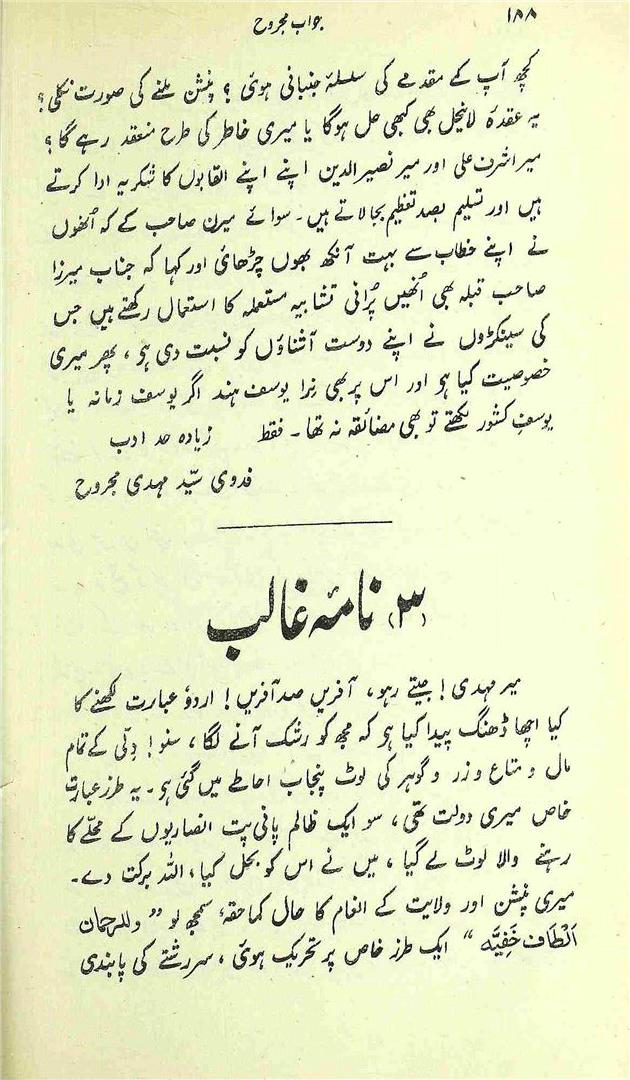 ۱۸۸
جواب مجروح
کچھ آپ کے مقدمے کی سلسلۂ جنبانی ہوئی ؟ پنشن ملنے کی صورت نکلی ؟
یہ عقدۂ لاینحل بھی کبھی حل ہوگا یا میری خاطر کی طرح منعقد رہے گا ؟
میر اشرف علی اور میر نصیر الدین اپنے اپنے القابوں کا شکریہ ادا کرتے
ہیں اور تسلیم بصد تعظیم بجا لاتے ہیں ۔ سوائے میرن صاحب کے کہ اُنھوں
نے اپنے خطاب سے بہت آنکھ بھوں چڑھائی اور کہا کہ جناب میرزا
صاحب قبلہ بھی اُنھیں پُرانی تشابیہ مستعملہ کا استعمال رکھتے ہیں جس
کی سینکڑوں نے اپنے دوست آشناؤں کو نسبت دی ہو ، پھر میری
خصوصیت کیا ہو اور اس پر بھی نِرا یوسف ہند اگر یوسف زمانہ یا
یوسفِ کشور لکھتے تو بھی مضائقہ نہ تھا ۔ فقط زیادہ حد ادب
فدوی سیّد مہدی مجروح
(۳) نامۂ غالب
میر مہدی ! جیتے رہو ، آفریں صد آفریں ! اردو عبارت لکھنے کا
کیا اچھا ڈھنگ پیدا کیا ہو کہ مجھ کو رشک آنے لگا ، سنو ! دِلّی کے تمام
مال و متاع و زر و گوہر کی لوٹ پنجاب احاطے میں گئی ہو ۔ یہ طرز عبارت
خاص میری دولت تھی ، سو ایک ظالم پانی پت انصاریوں کے محلّے کا
رہنے والا لوٹ لے گیا ، میں نے اس کو بحل کیا ، اللہ برکت دے ۔
میری پنشن اور ولایت کے انعام کا حال کما حقہٗ سمجھ لو ” وللرحمان
اَلْطاف خَفِیَّہ “ ایک طرز خاص پر تحریک ہوئی ، سررشتے کی پابندی